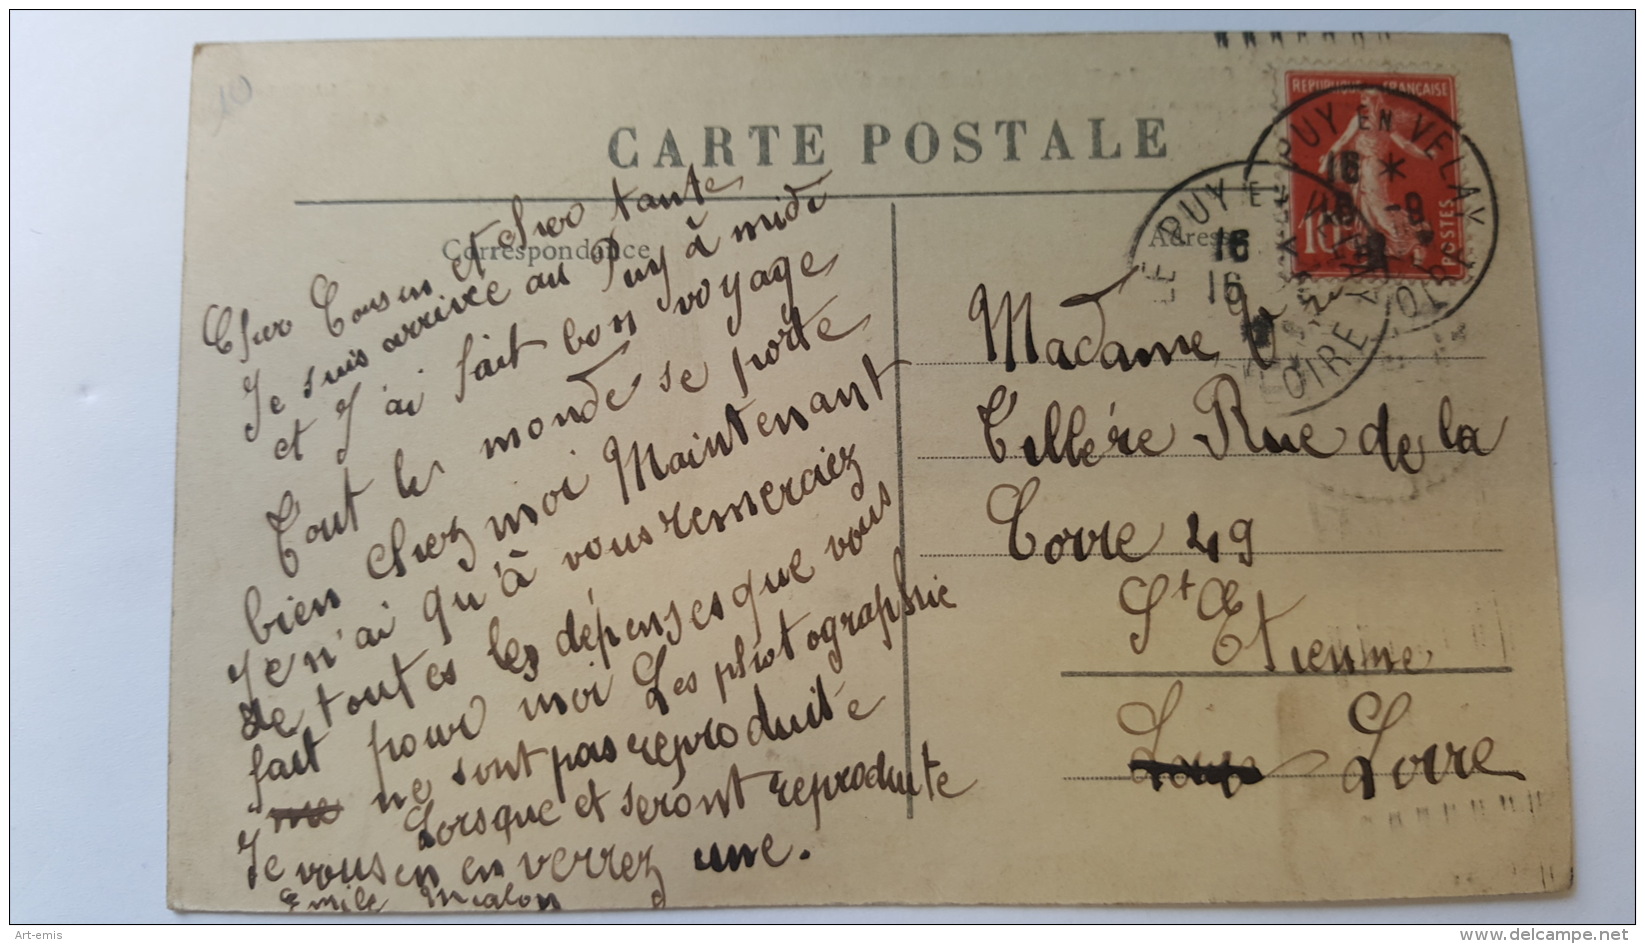 10
CARTE POSTALE
Correspondance
Adresse
REPUBLIQUE FRANÇAISE
10
POSTES
PUY EN VELAY
16 *
16 -9
LOIRE
LE PUY E
16
16
LOIRE
Cher Cousin et Cher tante
Je suis arrivée au Puy à midi
et J'ai fait bon voyage
Tout le monde se porte
bien chez moi Maintenant
Je n'ai qu'à vous remerciez
de toutes les dépenses que vous
fait pour moi Les photographie
ne sont pas reproduité
Lorsque et seront reproduite
Je vous en en verrez une.
Emile Mialon
Madame
Tillére Rue de la
Tovre 49
St Etienne
Loire
Art-emis
www.delcampe.net